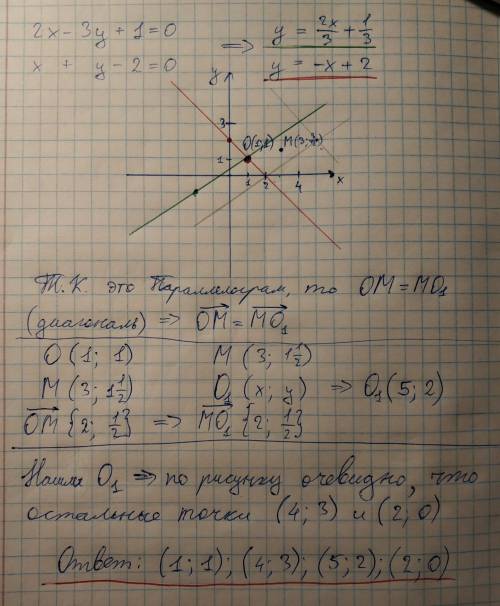 2x - 3y + 1 = 0 => y = 2x/3 + 1/3
x + y - 2 = 0 y = -x + 2
y
3
O(1;1) M(3;1½)
1
1 2 4 x
Т.К. это Параллелограм, то OM = MO₁
(диагональ) => OM = MO₁
O (1; 1) M (3; 1½)
M (3; 1½) O₁ (x; y) => O₁(5; 2)
OM {2; ½} => MO₁ {2; ½}
Нашли O₁ => по рисунку очевидно, что
остальные точки (4; 3) и (2; 0)
Ответ: (1; 1); (4; 3); (5; 2); (2; 0)